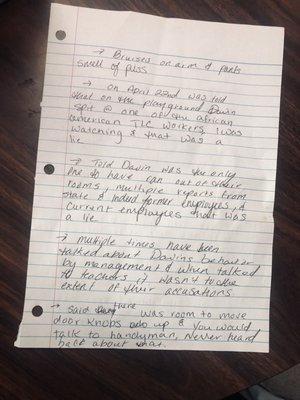 → Bruises on arm & pants
smell of piss
→ on April 22nd was told
that on the playground Davin
spit @ one of the african
american TLC workers, I was
watching & that was a
lie
→ Told Davin was the only
one to have ran out of their
rooms, multiple reports from
state & indeed former employees, &
current employees that was
a lie.
→ multiple times have been
talked about Davins behavior
by management & when talked
to teachers it wasn't to the
extent of their accusations
→ Said there was room to move
door knobs up & you would
talk to handyman, never heard
back about that.